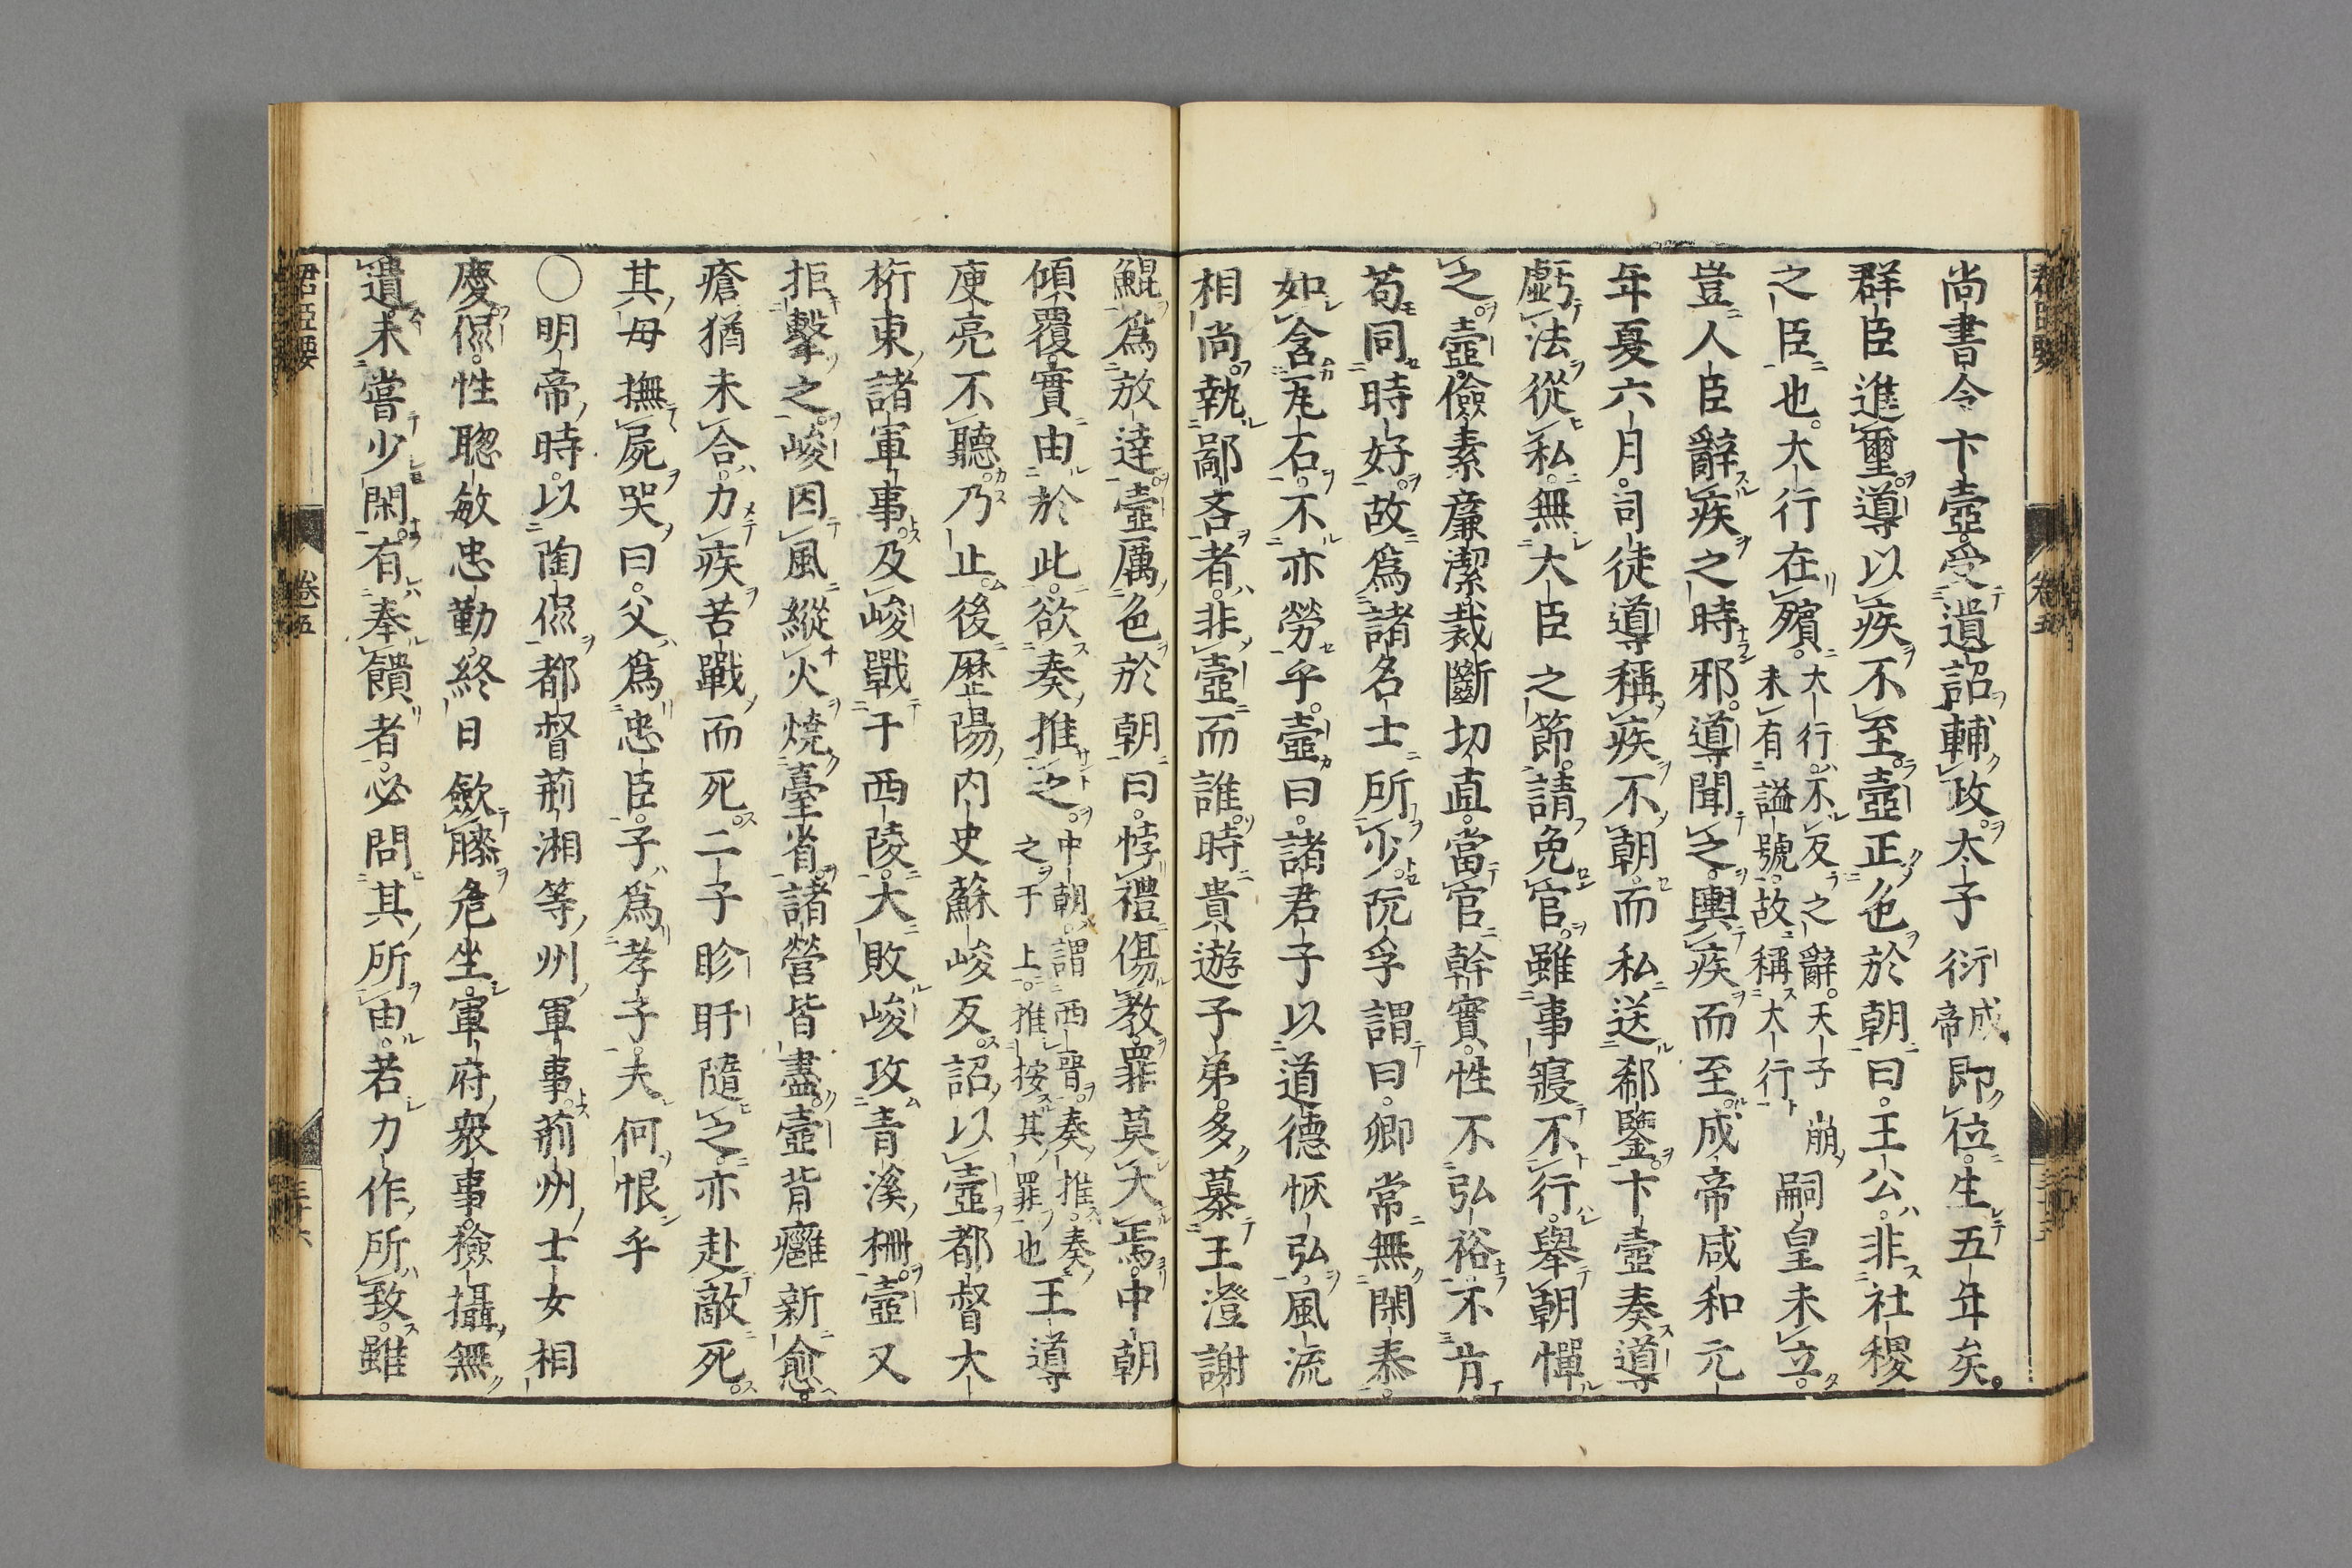 尚書令卞壼受遺詔輔政太子衍成帝即位生五年矣
群臣進璽導以疾不至壼正色於朝曰王公非社稷
之臣也大行在殯大行不反之辭天子崩未有謚號故稱大行嗣皇未立
豈人臣辭疾之時邪導聞之輿疾而至成帝咸和元
年夏六月司徒導稱疾不朝而私送郗鑒卞壼奏導
虧法從私無大臣之節請免官雖事寢不行舉朝憚
之壼儉素廉潔裁斷切直當官幹實性不弘裕不肯
苟同時好故為諸名士所少阮孚謂曰卿常無閑泰
如含瓦石不亦勞乎壼曰諸君子以道德恢弘風流
相尚執鄙吝者非壼而誰時貴遊子弟多慕王澄謝
鯤為放達壼厲色於朝曰悖禮傷教罪莫大焉中朝
傾覆實由於此欲奏推之中朝謂西晉奏推奏之于上推按其罪也王導
庾亮不聽乃止後歷陽內史蘇峻反詔以壼都督大
桁東諸軍事及峻戰于西陵大敗峻攻青溪柵壼又
拒擊之峻因風縱火燒臺省諸營皆盡壼背癰新愈
瘡猶未合力疾苦戰而死二子眕盱隨之亦赴敵死
其母撫屍哭曰父為忠臣子為孝子夫何恨乎
〇明帝時以陶侃都督荊湘等州軍事荊州士女相
慶侃性聰敏忠勤終日歛膝危坐軍府衆事檢攝無
遺未嘗少閑有奉饋者必問其所由若力作所致雖
卷五
卷五